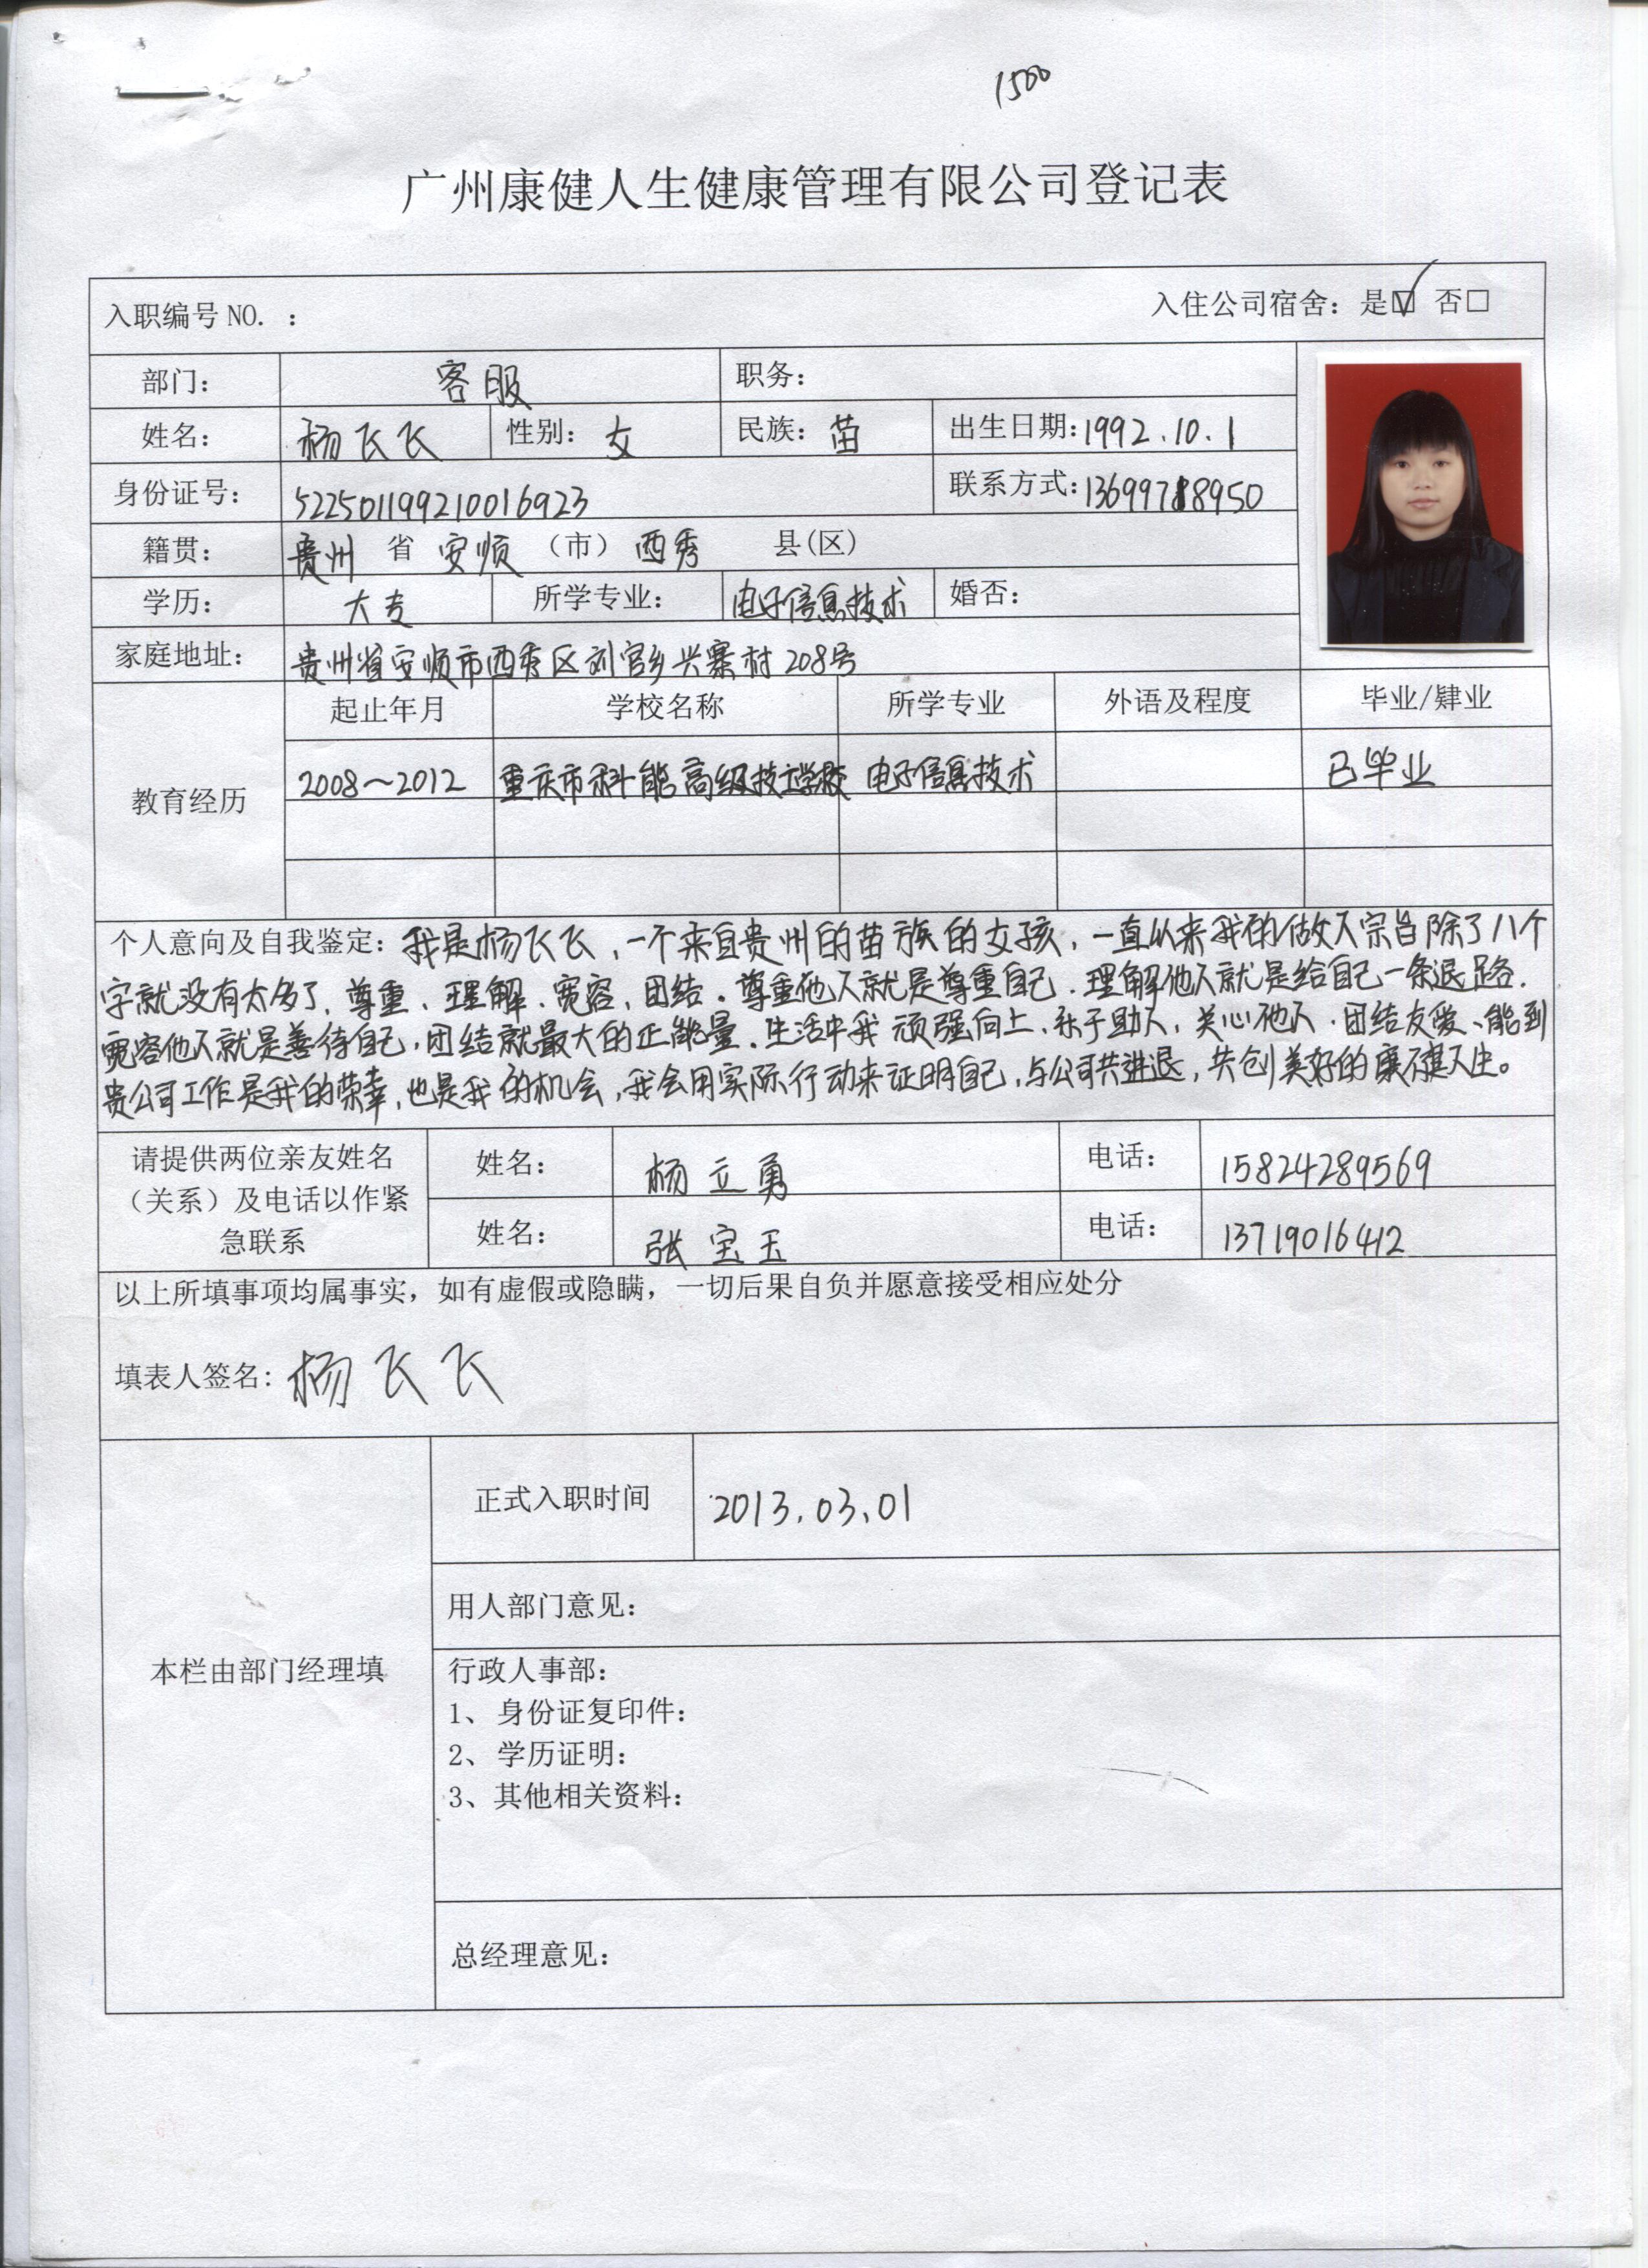 1500
广州康健人生健康管理有限公司登记表
入职编号 NO. : 入住公司宿舍: 是☑ 否□
部门: 客服 职务:
姓名: 杨飞飞 性别: 女 民族: 苗 出生日期: 1992.10.1
身份证号: 522501199210016923 联系方式: 13699788950
籍贯: 贵州 省 安顺 （市） 西秀 县(区)
学历: 大专 所学专业: 电子信息技术 婚否:
家庭地址: 贵州省安顺市西秀区刘官乡兴寨村208号
起止年月 学校名称 所学专业 外语及程度 毕业/肄业
教育经历
2008～2012 重庆市科能高级技工学校 电子信息技术 已毕业
个人意向及自我鉴定: 我是杨飞飞，一个来自贵州的苗族的女孩，一直以来我的做人宗旨除了八个
字就没有太多了，尊重、理解、宽容、团结。尊重他人就是尊重自己，理解他人就是给自己一条退路，
宽容他人就是善待自己，团结就最大的正能量。生活中我顽强向上、乐于助人，关心他人，团结友爱、能到
贵公司工作是我的荣幸，也是我的机会，我会用实际行动来证明自己，与公司共进退，共创美好的康健人生。
请提供两位亲友姓名（关系）及电话以作紧急联系
姓名: 杨立勇 电话: 15824289569
姓名: 张宝玉 电话: 13719016412
以上所填事项均属事实，如有虚假或隐瞒，一切后果自负并愿意接受相应处分
填表人签名: 杨飞飞
正式入职时间 2013.03.01
用人部门意见:
本栏由部门经理填
行政人事部:
1、身份证复印件:
2、学历证明:
3、其他相关资料:
总经理意见: